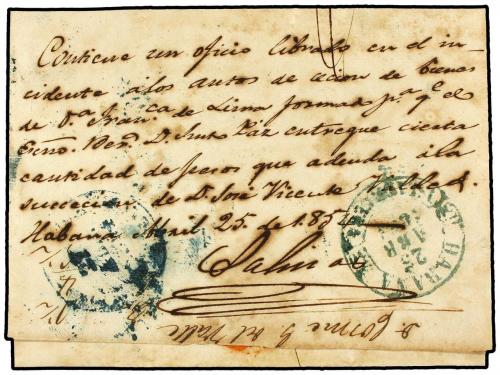 Contiene un oficio librado en el in-
cidente a los autos de cecion de bienes
de D.ª Fran.ca de Lima formado p.ª q.e el
Exmo. Sor. D. Paz entregue cierta
cantidad de pesos que adeuda á la
sucecion de D. José Vicente Valdes.
Habana Abril 25 de 185
HABANA
25
ABR
del Valle